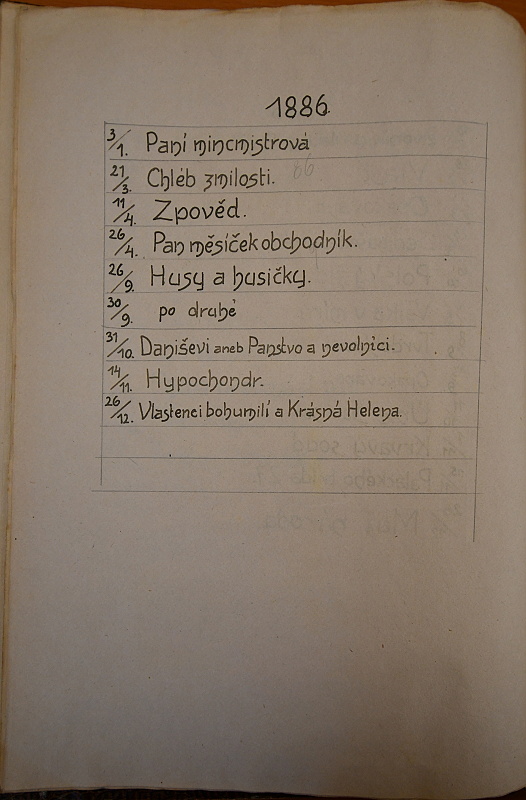 1886.
3/1. Paní mincmistrová
21/3. Chléb z milosti.
11/4. Zpověd.
26/4. Pan měsíček obchodník.
26/9. Husy a husičky.
30/9. po druhé
31/10. Daniševi aneb Panstvo a nevolníci.
14/11. Hypochondr.
26/12. Vlastenci bohumilí a Krásná Helena.